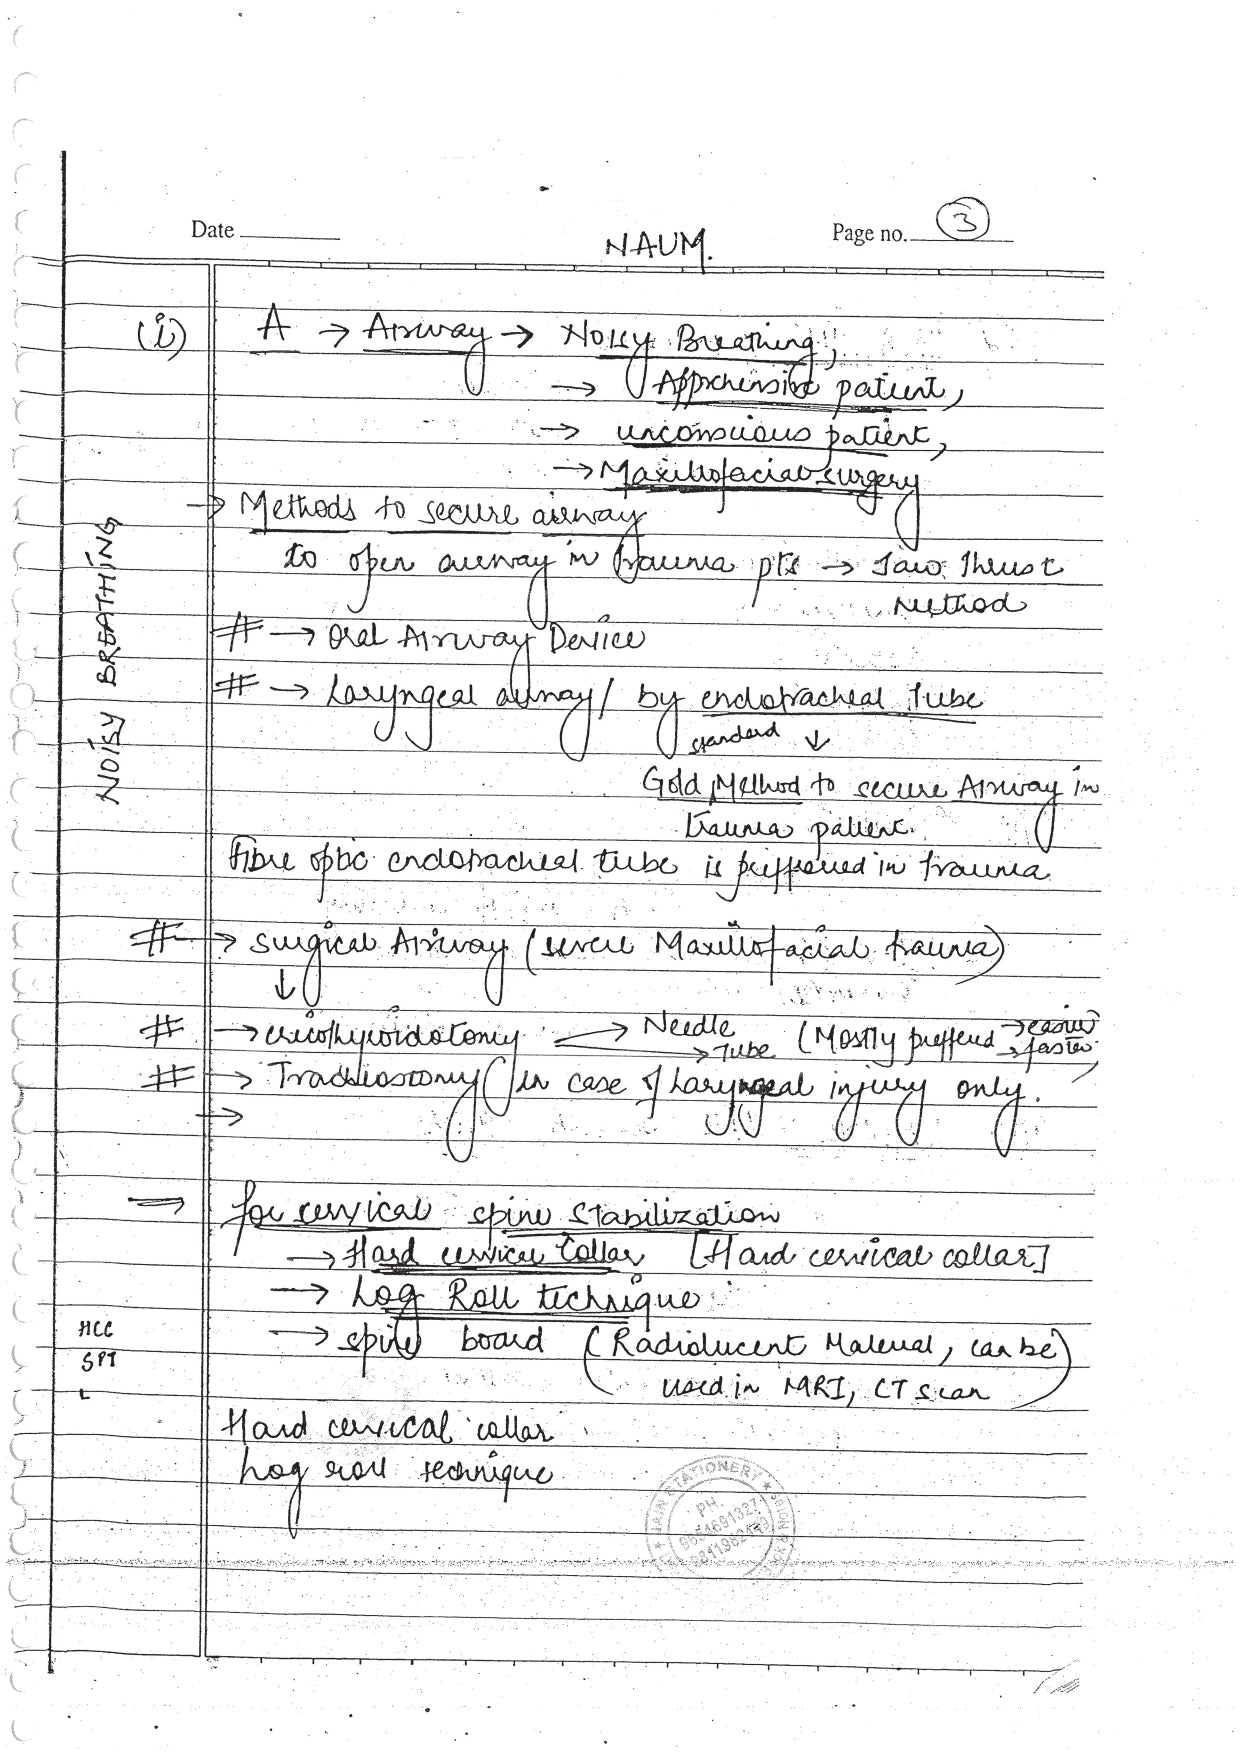 Date
NAUM.
Page no. 3
(i) A → Airway → Noisy Breathing,
→ Apprehensive patient,
→ unconscious patient,
→ Maxillofacial surgery
→ Methods to secure airway
to open airway in trauma pts → Jaw Thrust
Method
# → Oral Airway Device
# → Laryngeal airway / by endotracheal tube
standard ↓
Gold Method to secure Airway in
trauma patient.
Fibre optic endotracheal tube is preffered in trauma
NOISY BREATHING
# → Surgical Airway (severe Maxillofacial trauma)
↓
# → cricothyroidotomy → Needle (Mostly preffered → easier
→ Tube → faster)
# → Tracheostomy (in case of Laryngeal injury only.
→
⇒ for cervical spine stabilization
→ Hard cervical Collar [Hard cervical collar]
→ Log Roll technique
→ spine board (Radiolucent Material, can be
used in MRI, CT scan)
HCC
SPT
L
Hard cervical collar
Log roll technique
JAIN STATIONERY
PH.